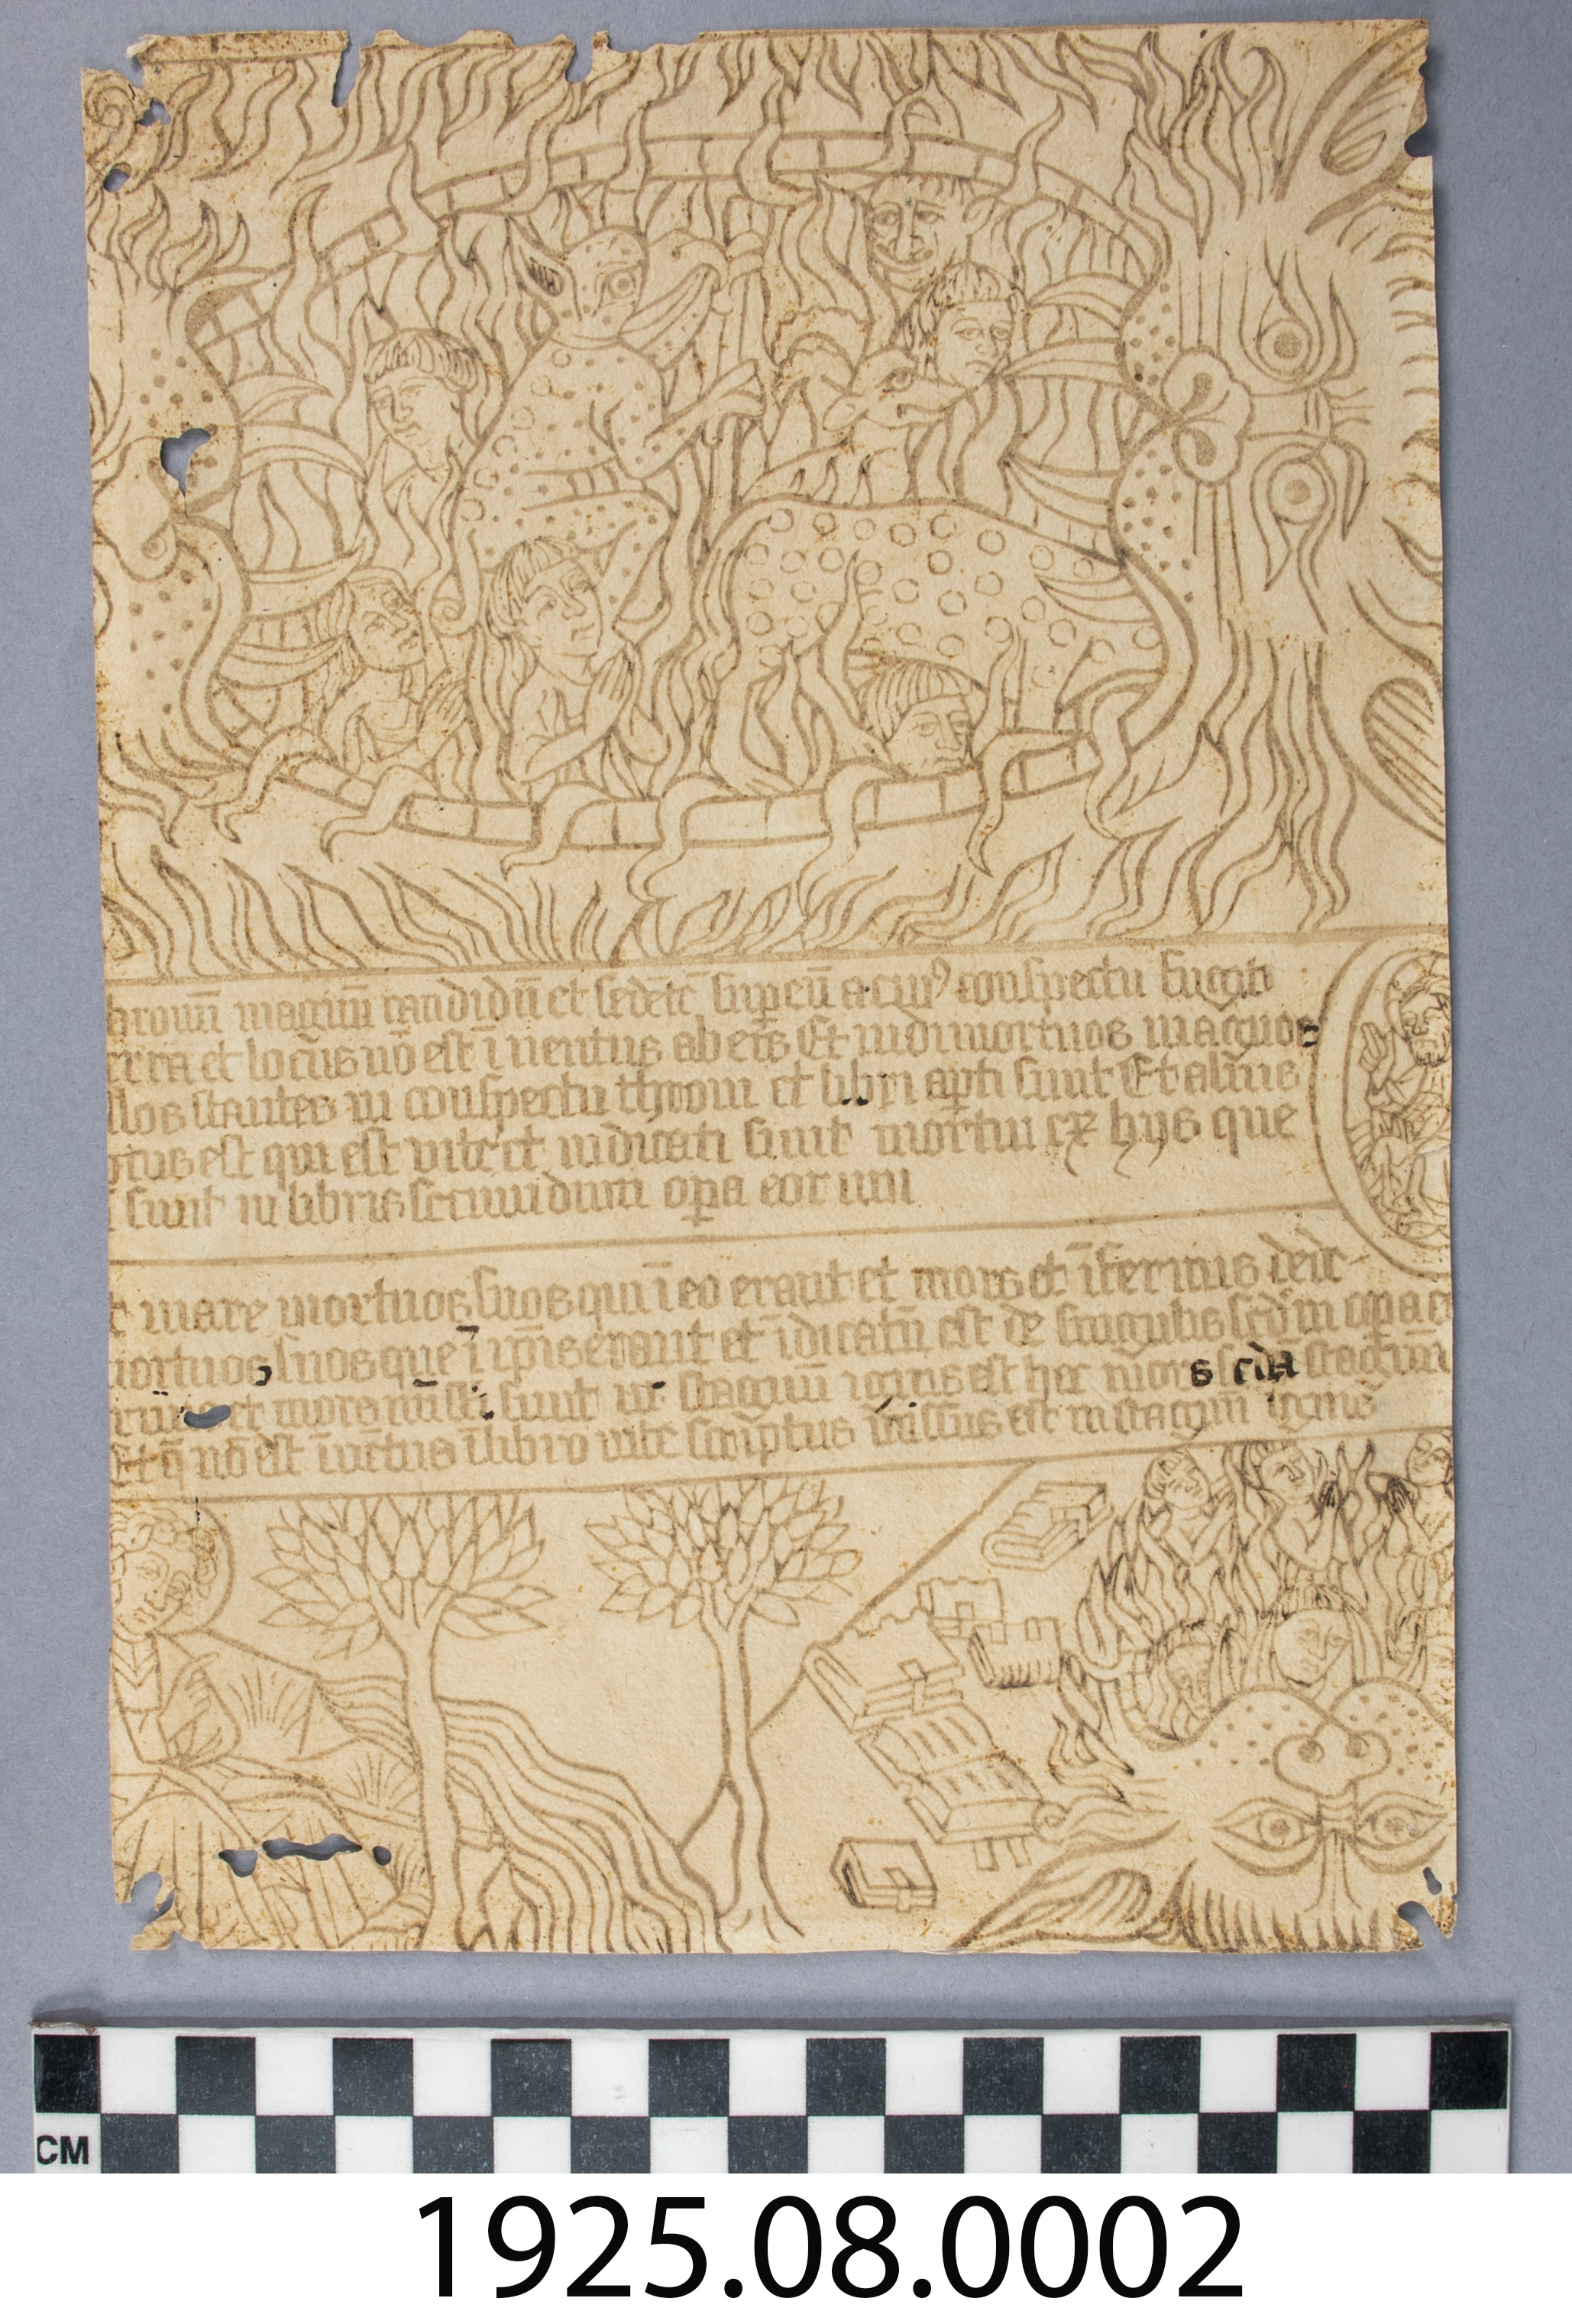 thronū magnū candidū et sedētē sup eū a cuiꝰ conspectu fugit
terra et locus nō est īuentus ab eis Et uidi mortuos magnos
pusillos stantes in conspectu throni et libri apti sunt Et alius
est qui est vite et iudicati sunt mortui ex hys que
sunt in libris secundum opa eorum
mare mortuos suos qui ī eo erant et mors et īfernus dedē
mortuos suos que ī ipis erant et īdicatū est de singulis scdm opa
et mors missi sunt in stagnū ignis est hec mors scda stagnū
Et q nō est īuētus ī libro vite scriptus missus est in stagnū ignis
CM
1925.08.0002